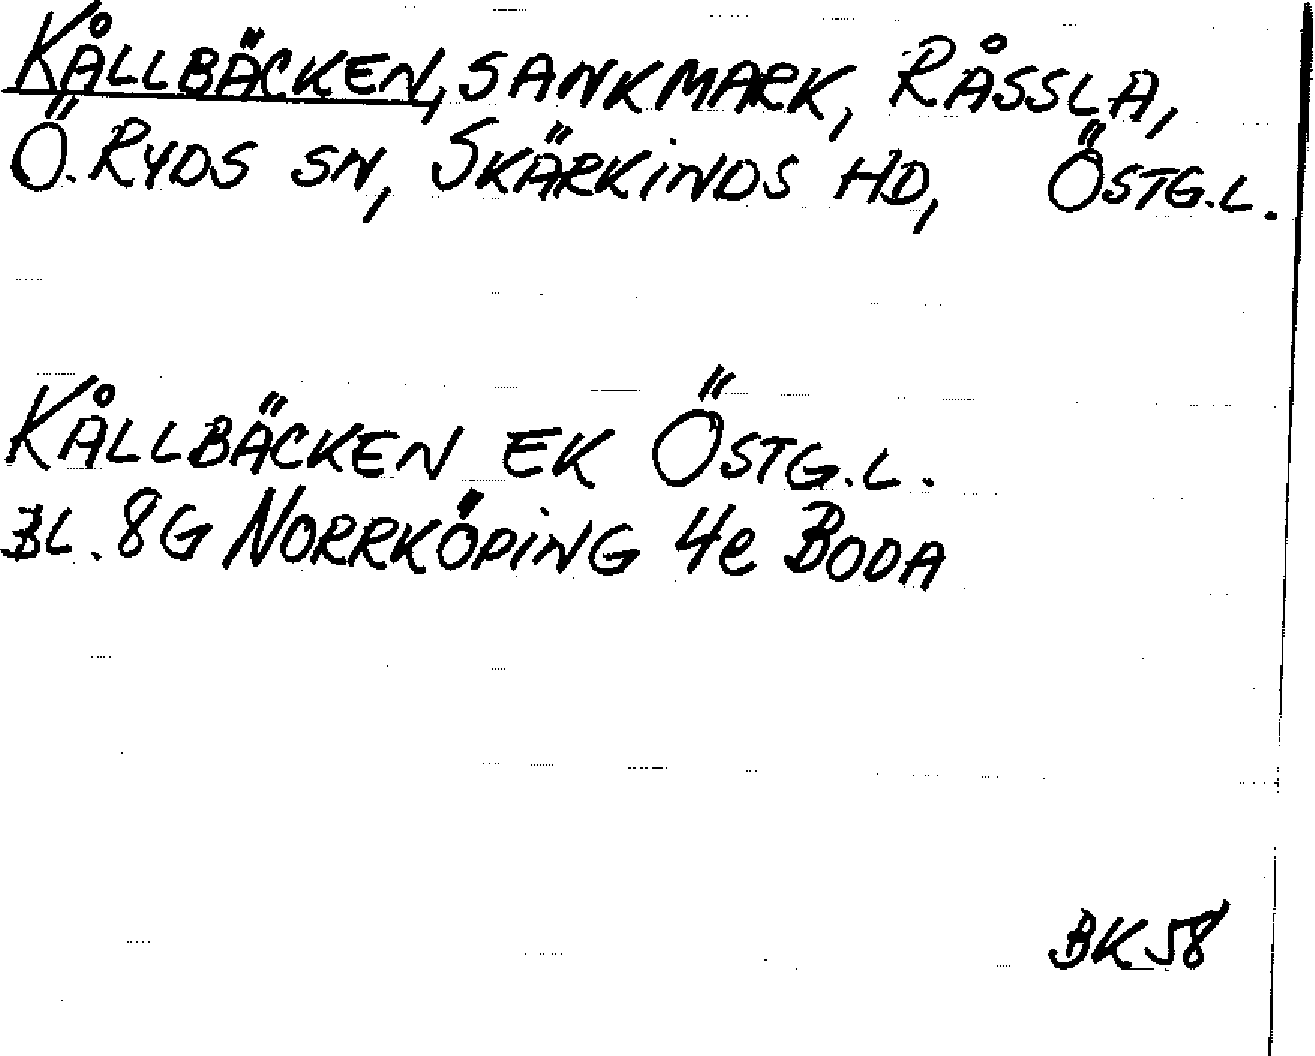 KÅLLBÄCKEN, SANKMARK, RÅSSLA,
Ö. RYDS SN, SKÄRKINDS HD, ÖSTG.L.
KÅLLBÄCKEN EK ÖSTG.L.
BL. 8G NORRKÖPING 4e BODA
BK 58